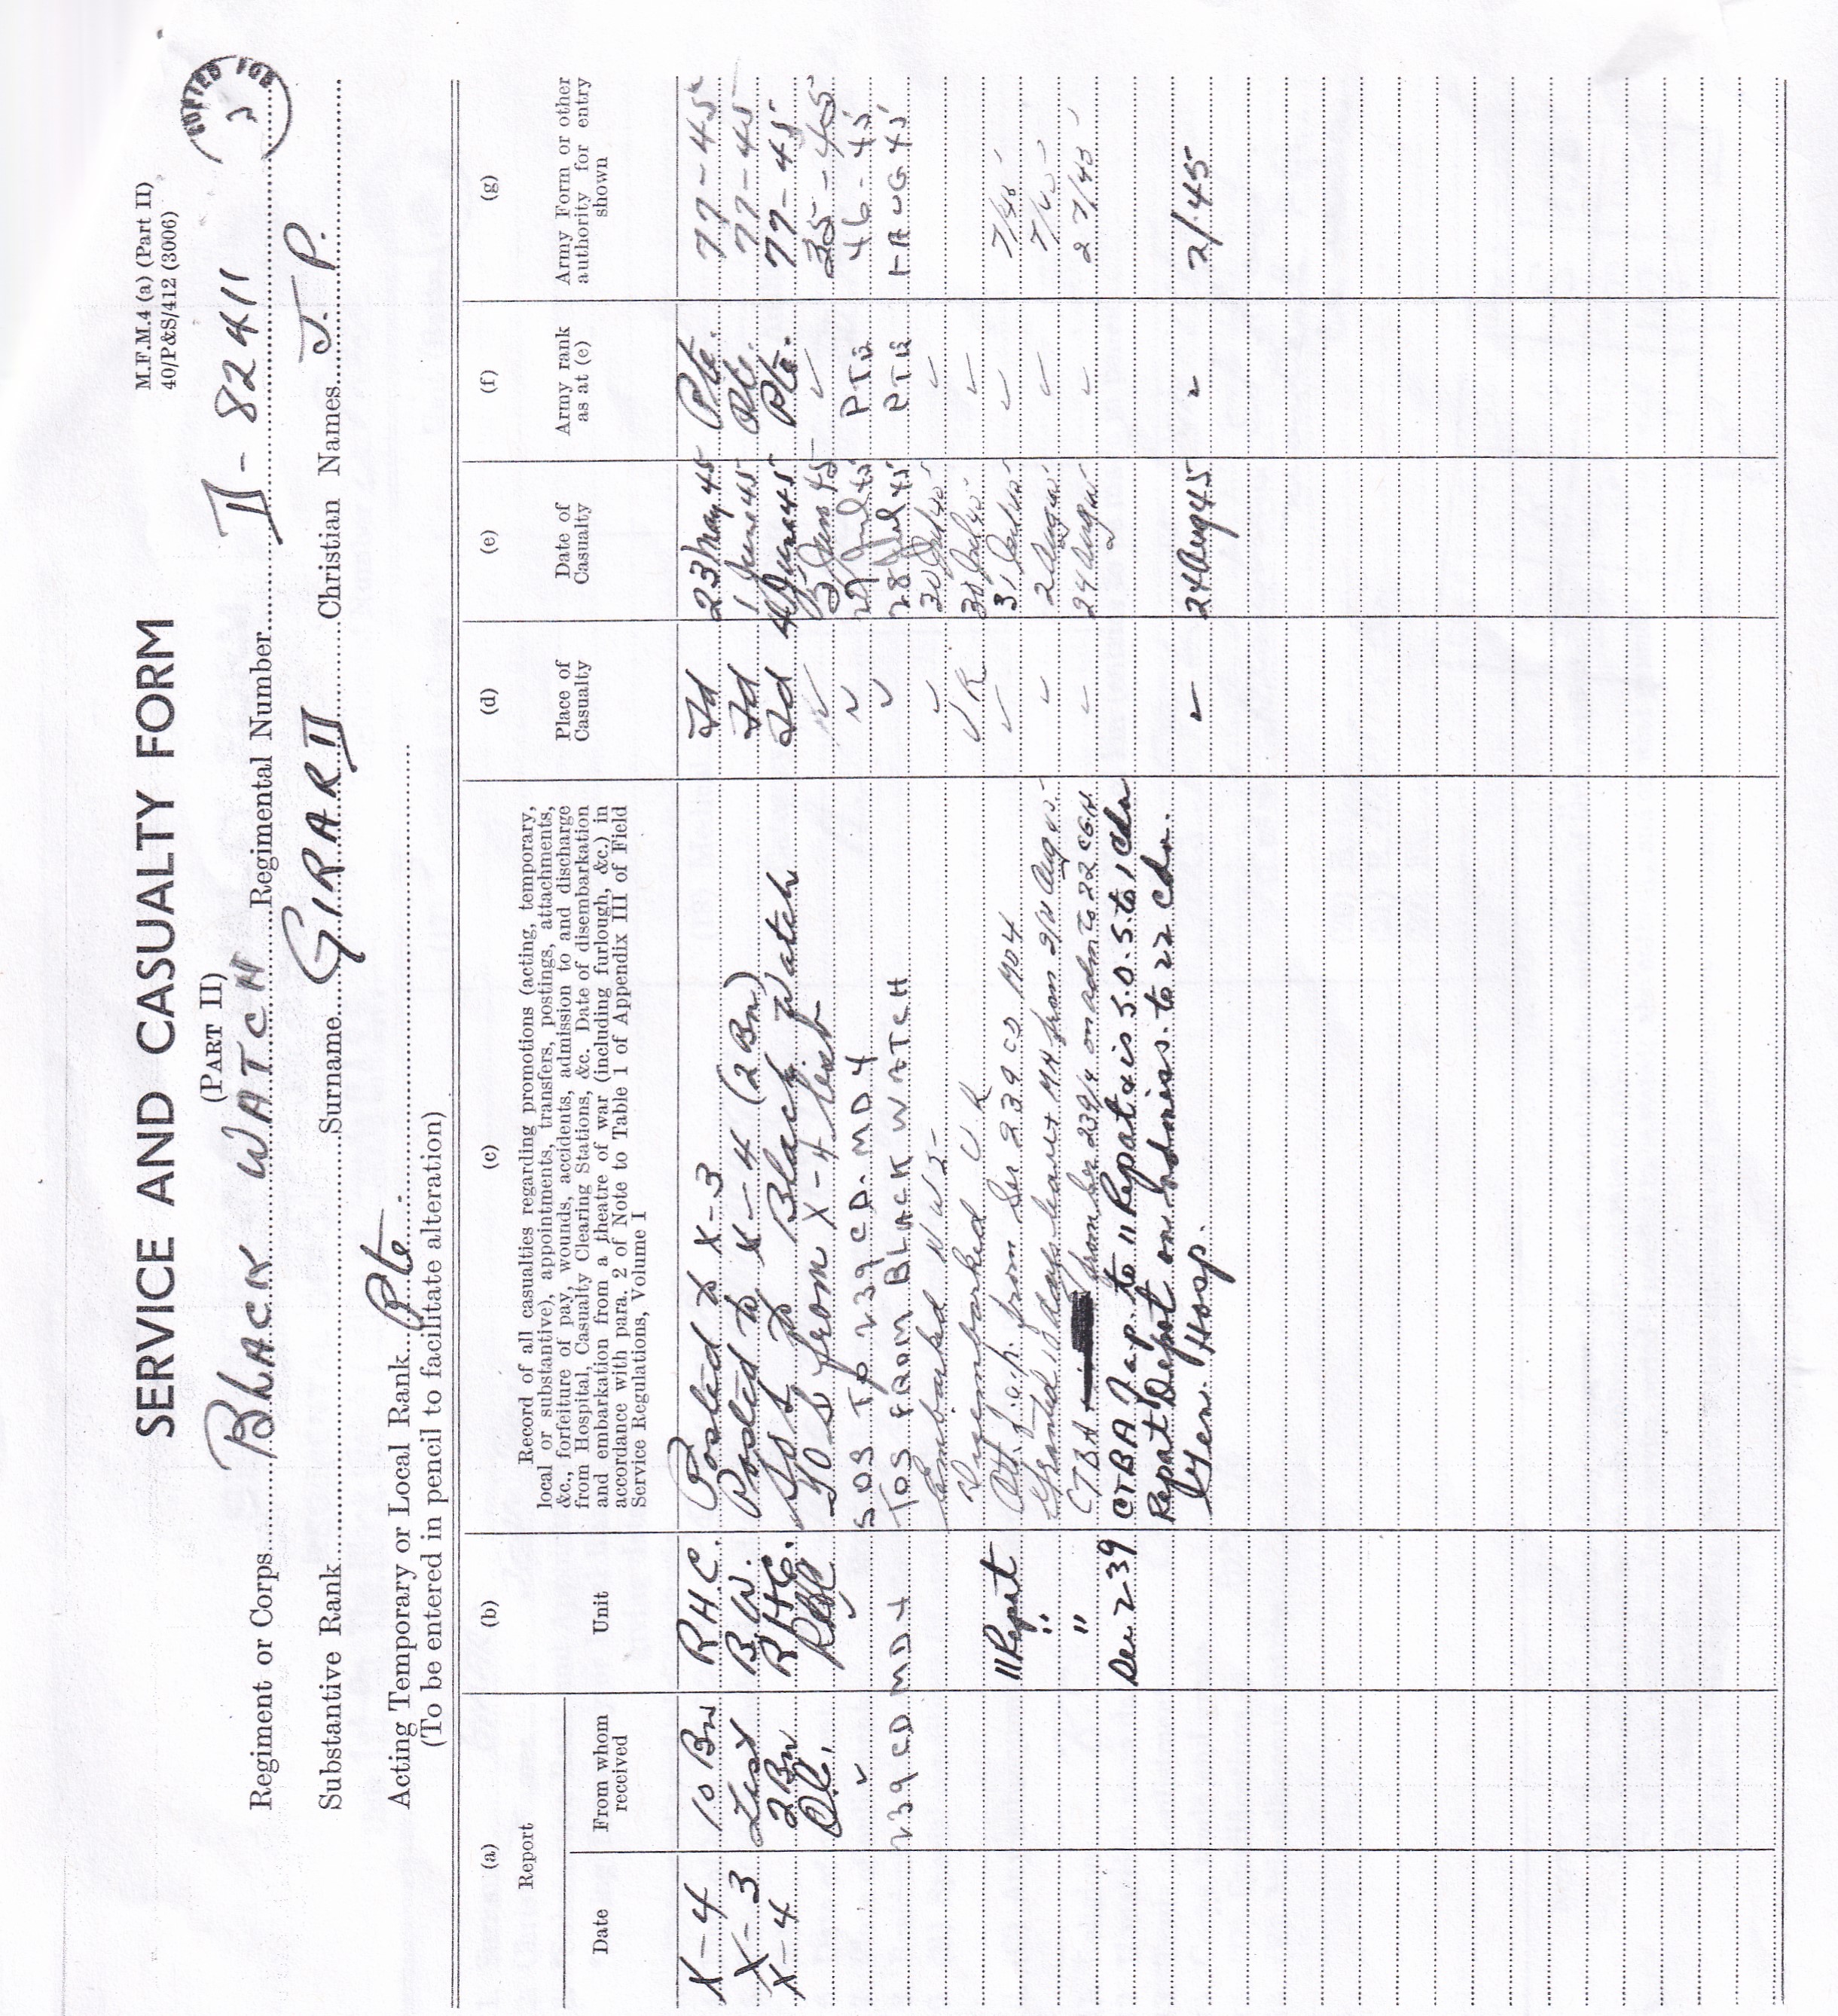 M.F.M.4 (a) (Part II)
40/P&S/412 (3006)
SERVICE AND CASUALTY FORM
(PART II)
Regiment or Corps BLACK WATCH Regimental Number D-82411
Substantive Rank Surname GIRARD Christian Names J. P.
Acting Temporary or Local Rank Pte.
(To be entered in pencil to facilitate alteration)
(a) (b) (c) (d) (e) (f) (g)
Report
Date From whom received Unit
Record of all casualties regarding promotions (acting, temporary,
local or substantive), appointments, transfers, postings, attachments,
&c., forfeiture of pay, wounds, accidents, admission to and discharge
from Hospital, Casualty Clearing Stations, &c. Date of disembarkation
and embarkation from a theatre of war (including furlough, &c.) in
accordance with para. 2 of Note to Table 1 of Appendix III of Field
Service Regulations, Volume I
Place of Casualty
Date of Casualty
Army rank as at (e)
Army Form or other authority for entry shown
X-4 10 Bn RHC. Posted to X-3 Fd 23 May 45 Pte. 77-45
X-3 List B.W. Posted to X-4 (2 Bn) Fd 1 June 45 Pte. 77-45
X-4 2Bn RHC. Fd 4 June 45 Pte. 77-45
O.C. RHC TOS from X-4 List 45 35-45
SOS TO 239 CD. MD4 45 PTE 46-45
239 CD MD4 TOS FROM BLACK WATCH 28 Jul 45 PTE 1 AUG 45
Embarked NWE 30 Jul 45
Disembarked U.K UK 30 Jul 45
11 Repat from Ser 239 CD MD4 31 Jul 45 7/45
" Granted days leave 2 Aug 45
" CTBA from Ser 239/4 on adm to 22 CGH 24 Aug 45 27/45
Ser 239 CTBA J.a.p. to 11 Repat & is S.O.S. to 1 Cdn
Repat Depot on admiss. to 22 Cdn. 24 Aug 45 2/45
Gen. Hosp.